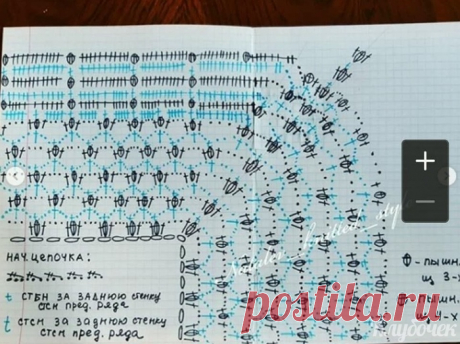 НАЧ. ЦЕПОЧКА:
СТБН ЗА ЗАДНЮЮ СТЕНКУ
СТСН ПРЕД. РЯДА
СТСН ЗА ЗАДНЮЮ СТЕНКУ
СТСН ПРЕД. РЯДА
- ПЫШН.
ИЗ 3-Х
- ПЫШН.
4-Х
postila.ru
Клубочек